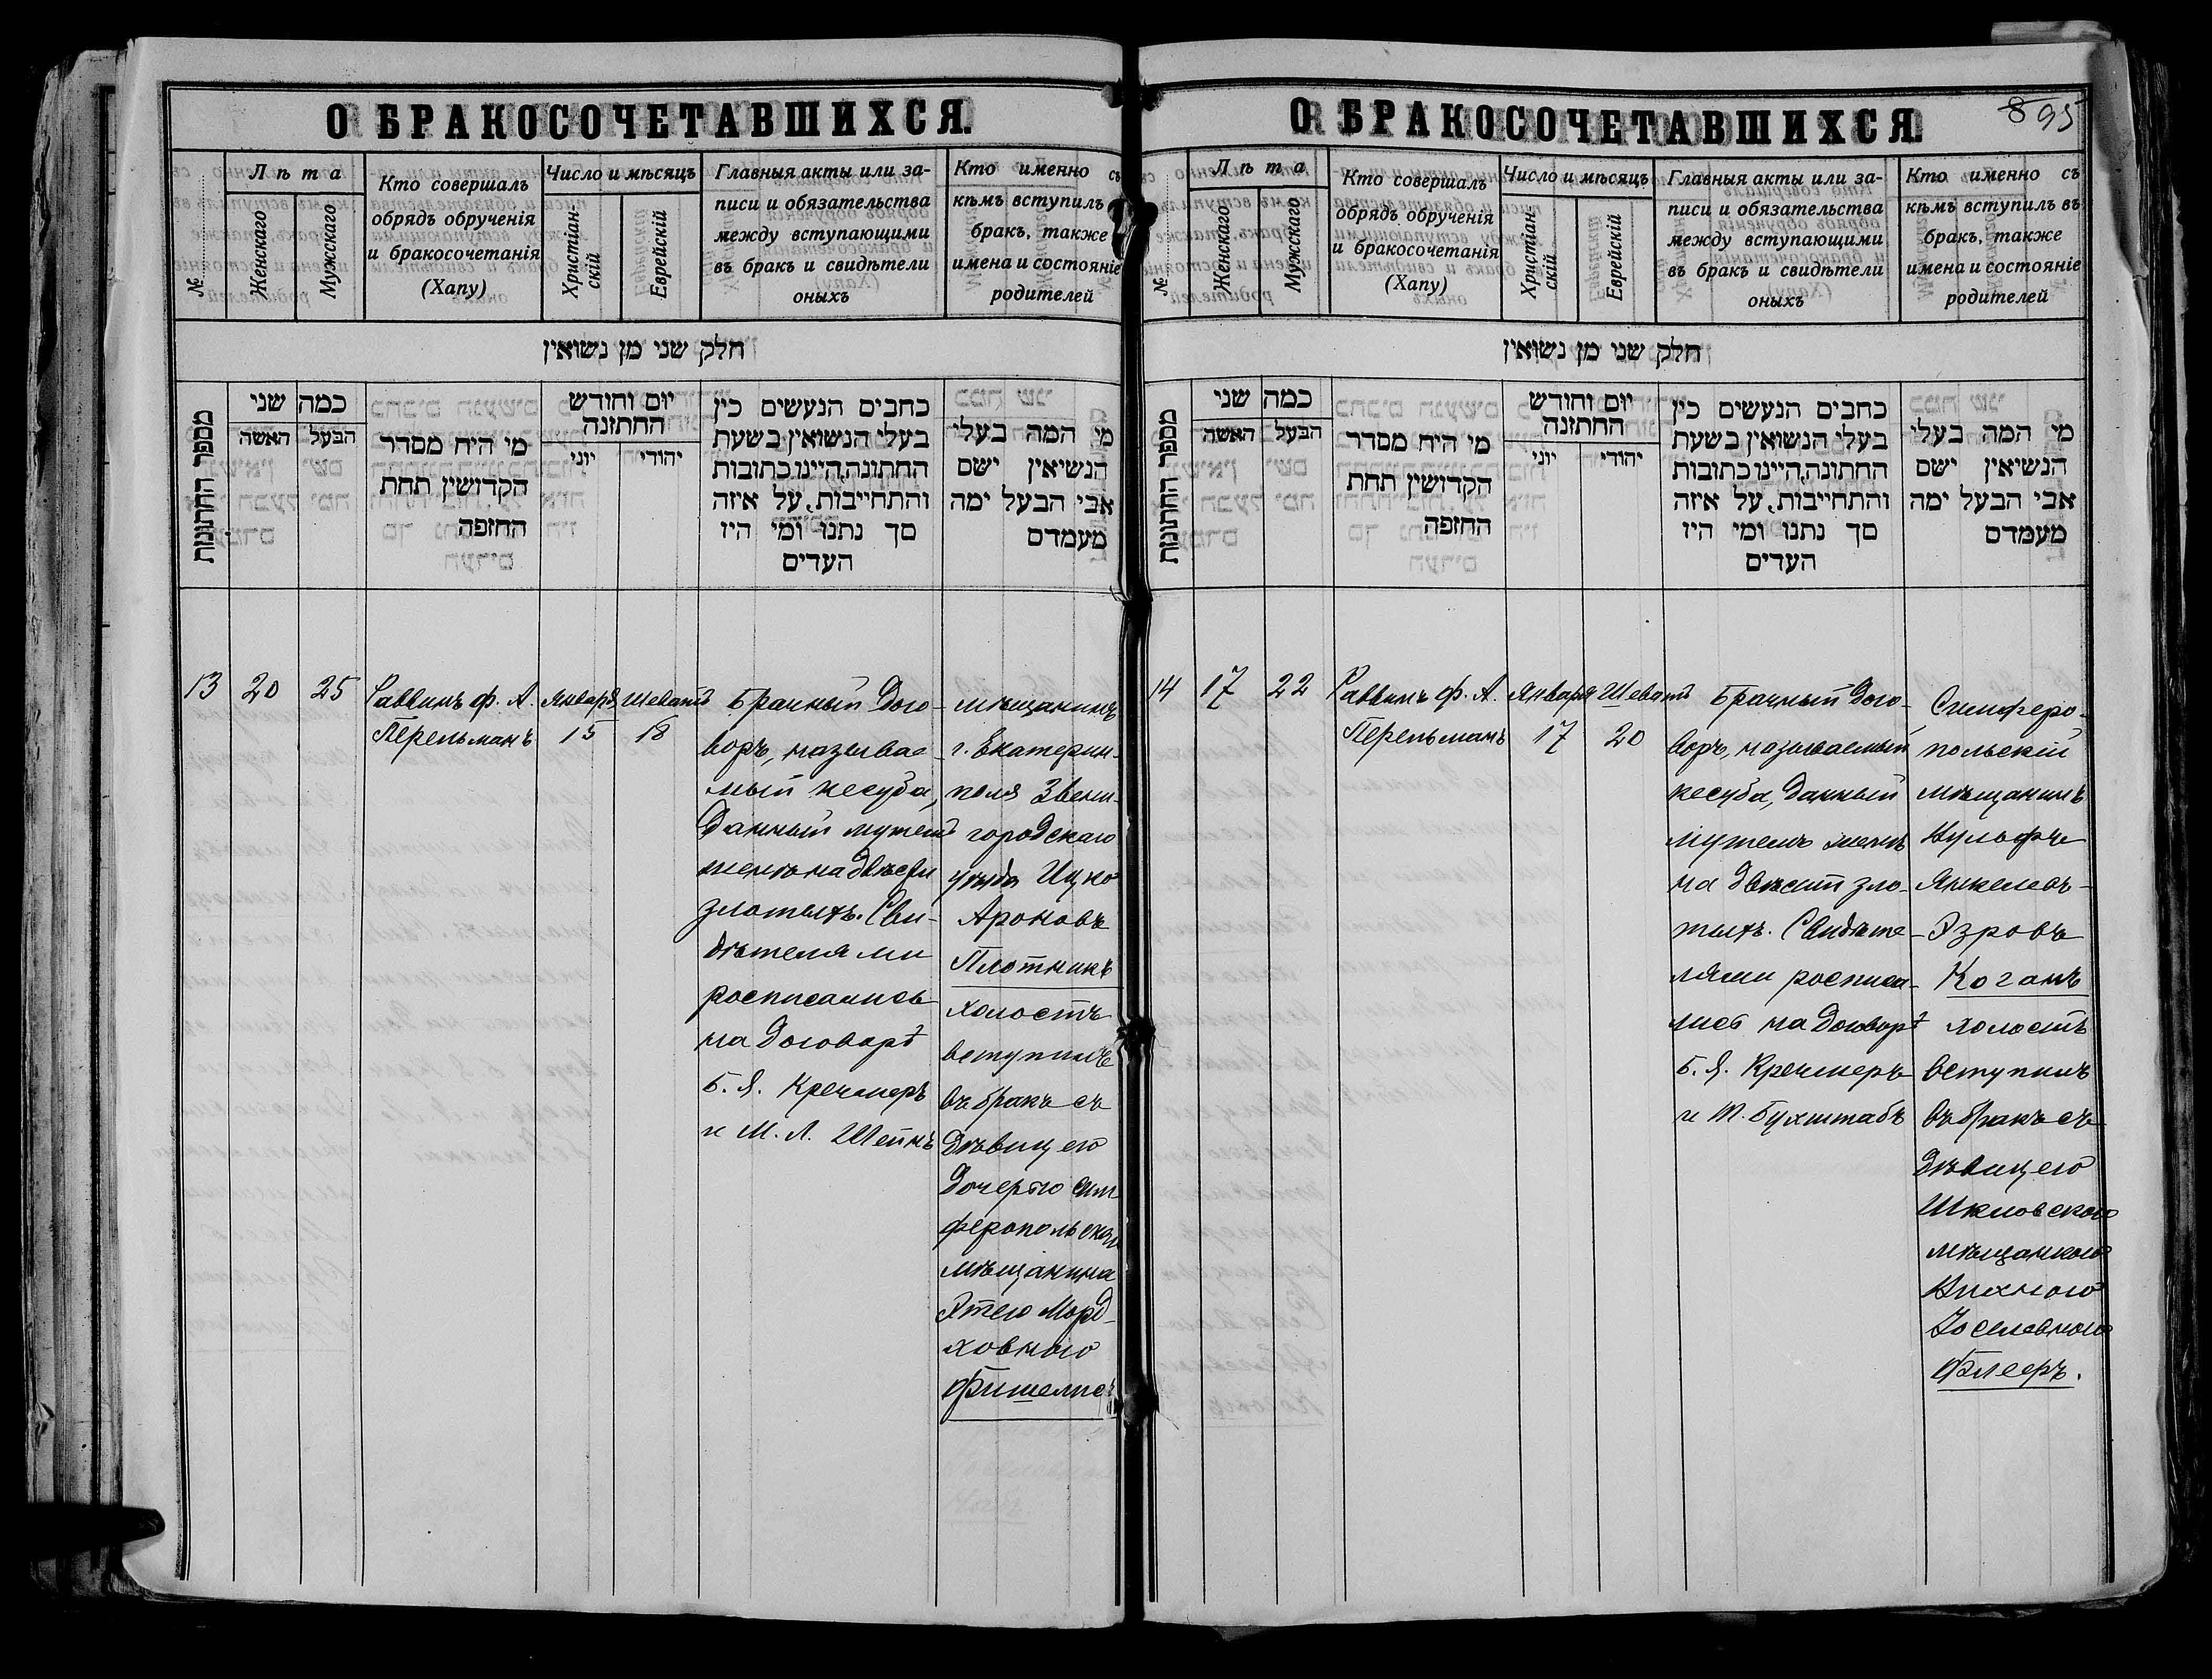 О БРАКОСОЧЕТАВШИХСЯ.
№
Лѣта
Женскаго
Мужскаго
Кто совершалъ
обрядъ обрученія
и бракосочетанія
(Хапу)
Число и мѣсяцъ
Христіан-
скій
Еврейскій
Главныя акты или за-
писи и обязательства
между вступающими
въ бракъ и свидѣтели
оныхъ
Кто именно съ
кѣмъ вступилъ
бракъ, также
имена и состояніе
родителей
חלק שני מן נשואין
מספר החתונות
כמה שני
האשה
הבעל
מי היח מסדר
הקדושין תחת
החופה
יום וחודש
החתונה
יוני
יהודי
כחבים הנעשים כין
בעלי הנשואין בשעת
החתונה,היינו כתובות
והתחייבות, על איזה
סך נתנו ומי היו
העדים
מי המה בעלי
הנשיאין ישם
אבי הבעל ימה
מעמדם
13
20
25
Раввинъ Ф. А.
Перельманъ
Января
15
Шеватъ
18
Брачный дого-
воръ, называе-
мый кесуба,
данный мужемъ
женѣ на двѣсти
злотыхъ. Сви-
дѣтелями
росписались
на договорѣ
Б. Я. Кречмеръ
и М. Л. Штейнъ
мѣщанинъ
г. Екатерин-
поля Звени-
городскаго
уѣзда Ицко
Ароновъ
Плотникъ
холостъ
вступилъ
въ бракъ съ
дѣвицею
дочерью сим
феропольскаго
мѣщанина
Этею Морд-
ховною
О БРАКОСОЧЕТАВШИХСЯ.
8 95
№
Лѣта
Женскаго
Мужскаго
Кто совершалъ
обрядъ обрученія
и бракосочетанія
(Хапу)
Число и мѣсяцъ
Христіан-
скій
Еврейскій
Главныя акты или за-
писи и обязательства
между вступающими
въ бракъ и свидѣтели
оныхъ
Кто именно съ
кѣмъ вступилъ въ
бракъ, также
имена и состояніе
родителей
חלק שני מן נשואין
מספר החתונות
כמה שני
האשה
הבעל
מי היח מסדר
הקדושין תחת
החופה
יום וחודש
החתונה
יוני
יהודי
כחבים הנעשים כין
בעלי הנשואין בשעת
החתונה,היינו כתובות
והתחייבות, על איזה
סך נתנו ומי היו
העדים
מי המה בעלי
הנשיאין ישם
אבי הבעל ימה
מעמדם
14
17
22
Раввинъ Ф. А.
Перельманъ
Января
17
Шеватъ
20
Брачный дого-
воръ, называемый
кесуба, данный
мужемъ женѣ
на двѣсти зло-
тыхъ. Свидѣте-
лями росписа-
лись на договорѣ
Б. Я. Кречмеръ
и Т. Бухштабъ
Симферо-
польскій
мѣщанинъ
Янкелевъ-
Эзровъ
Коганъ
холостъ
вступилъ
въ бракъ съ
дѣвицею
Шкловскою
мѣщанкою
Іоселевною
Флееръ.